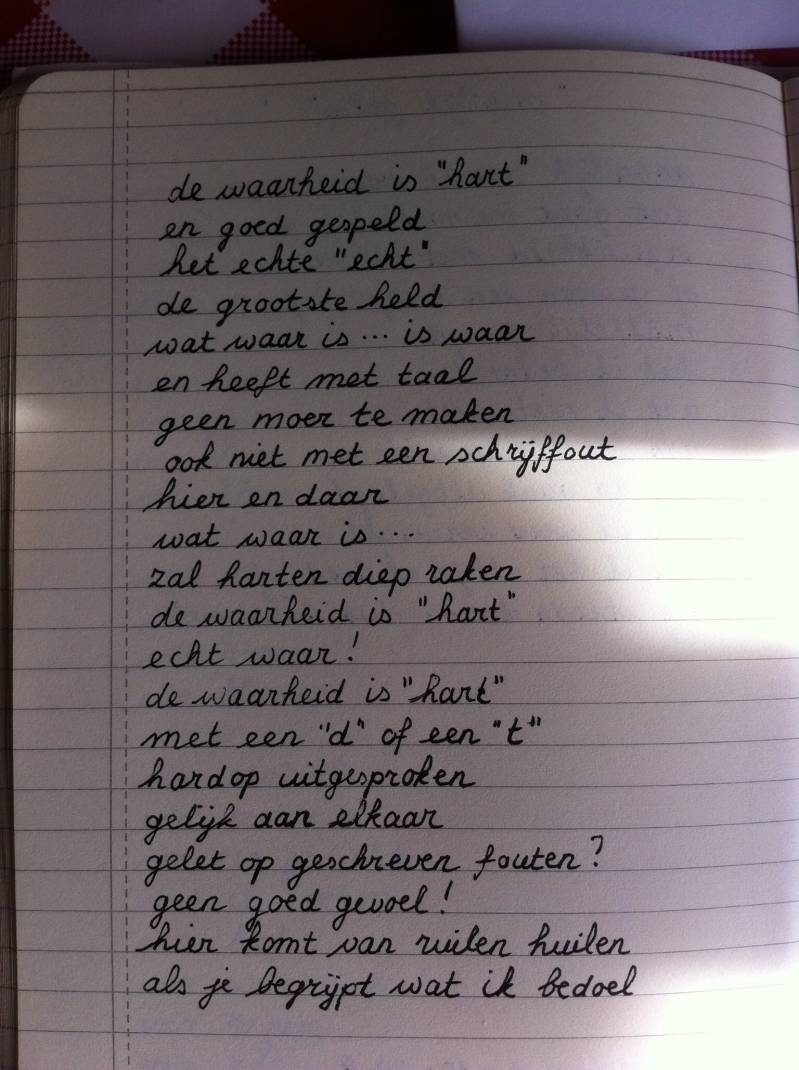 de waarheid is "hart"
en goed gespeld
het echte "echt"
de grootste held
wat waar is... is waar
en heeft met taal
geen moer te maken
ook niet met een schrijffout
hier en daar
wat waar is...
zal harten diep raken
de waarheid is "hart"
echt waar!
de waarheid is "hart"
met een "d" of een "t"
hardop uitgesproken
gelijk aan elkaar
gelet op geschreven fouten?
geen goed gevoel!
hier komt van ruilen huilen
als je begrijpt wat ik bedoel